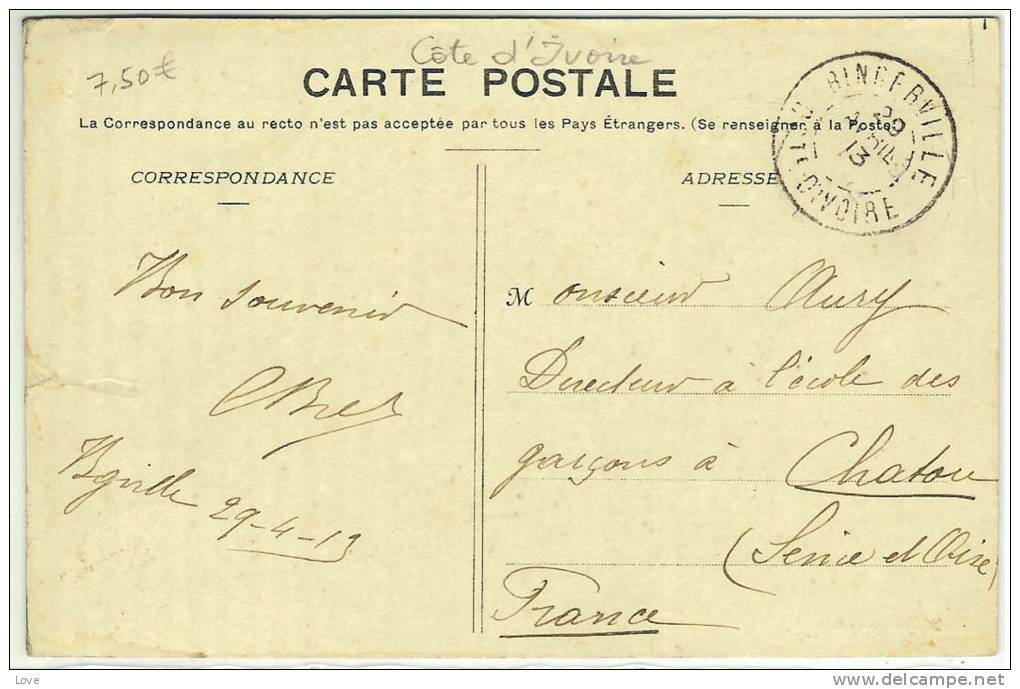 7,50€
Côte d'Ivoire
CARTE POSTALE
La Correspondance au recto n'est pas acceptée par tous les Pays Étrangers. (Se renseigner à la Poste)
BINGERVILLE
COTE D'IVOIRE
AVRIL
13
CORRESPONDANCE
ADRESSE
Bon souvenir
Bgville 29-4-13
Monsieur Aury
Directeur à l'école des
garçons à Chatou
(Seine et Oise)
France
Love
delcampe.net